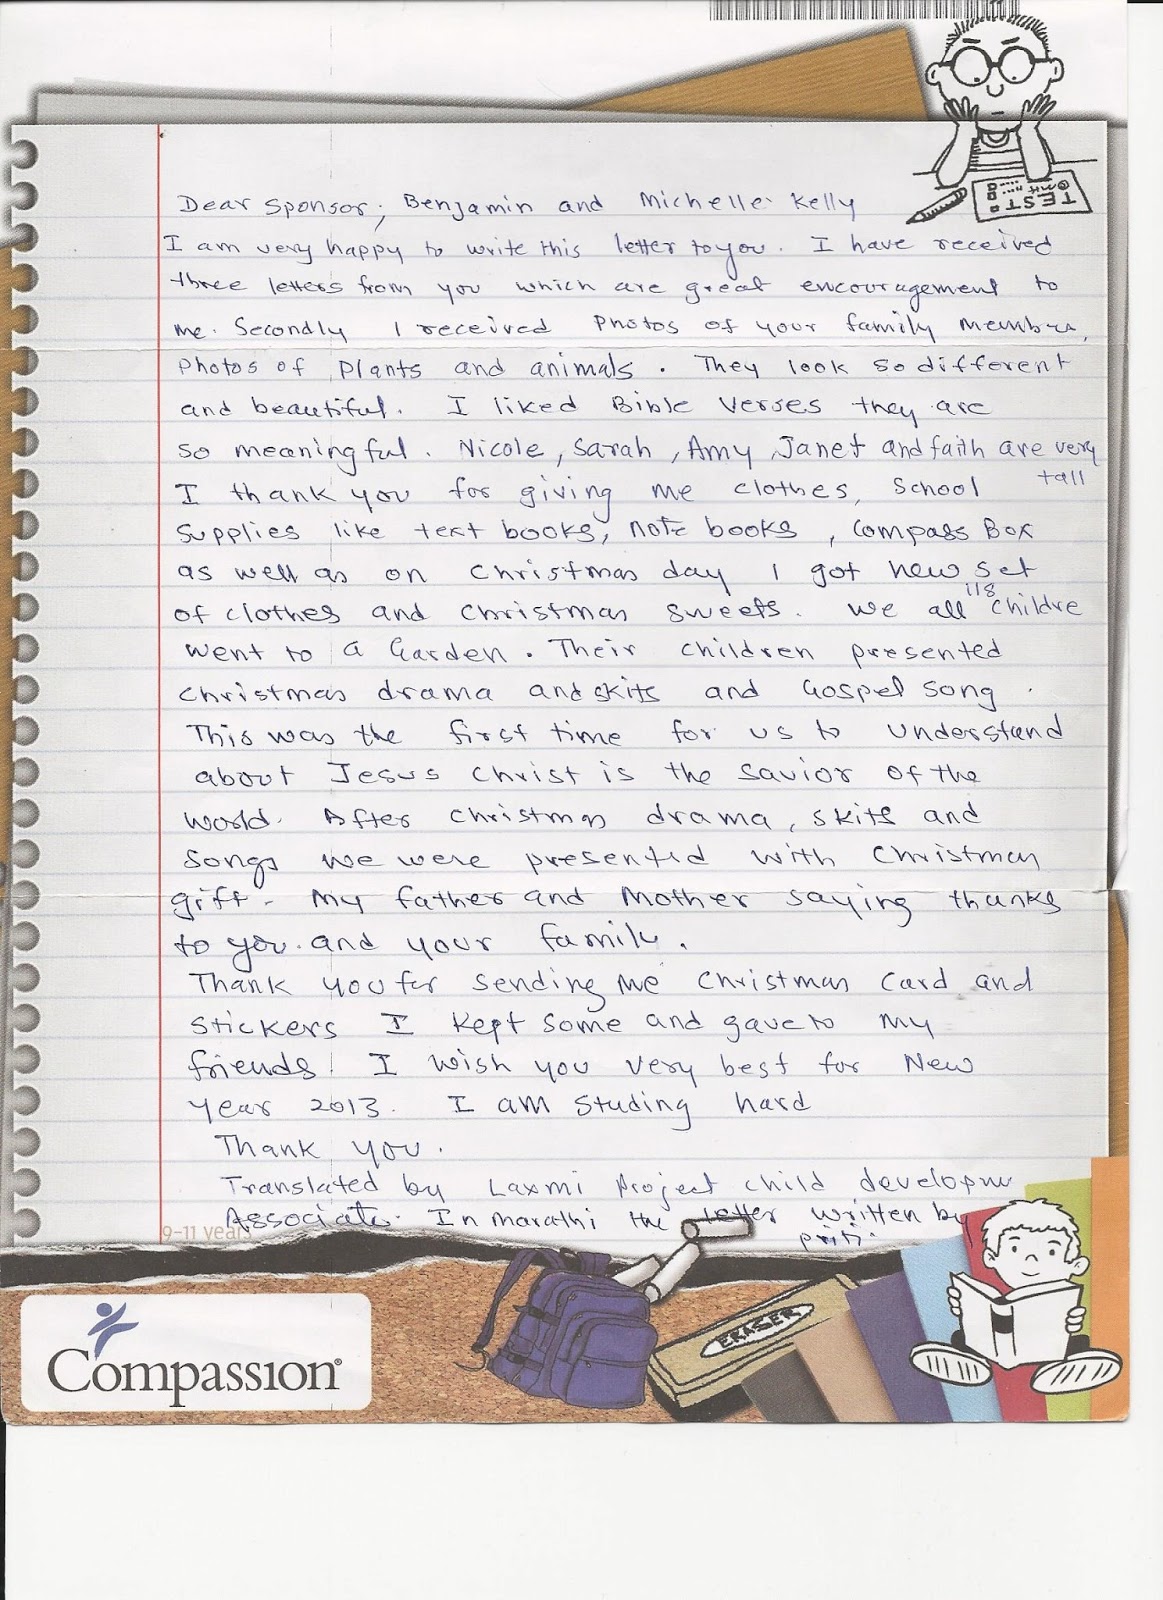 TEST
Dear Sponsor, Benjamin and Michelle Kelly
I am very happy to write this letter to you. I have received
three letters from you which are great encouragement to
me. Secondly I received Photos of your family
Photos of plants and animals. They look so different
and beautiful. I liked Bible Verses they are
so meaningful. Nicole, Sarah, Amy, Janet and faith are very
tall
I thank you for giving me clothes, School
Supplies like text books, note books, Compass Box
as well as on christmas day I got new set
of clothes and christmas sweets. We all 118 childre
went to a Garden. Their children presented
christmas drama and skits and Gospel song.
This was the first time for us to understand
about Jesus Christ is the savior of the
world. After christmas drama, skits and
songs we were presented with christmas
gift. My father and Mother saying thanks
to you and your family.
Thank you for sending me christmas card and
stickers I kept some and gave to my
friends! I wish you very best for New
year 2013. I am studing hard
Thank you.
Translated by Laxmi project child
Associate. In marathi the letter written by
priti.
9-11 years
ERASER
Compassion®